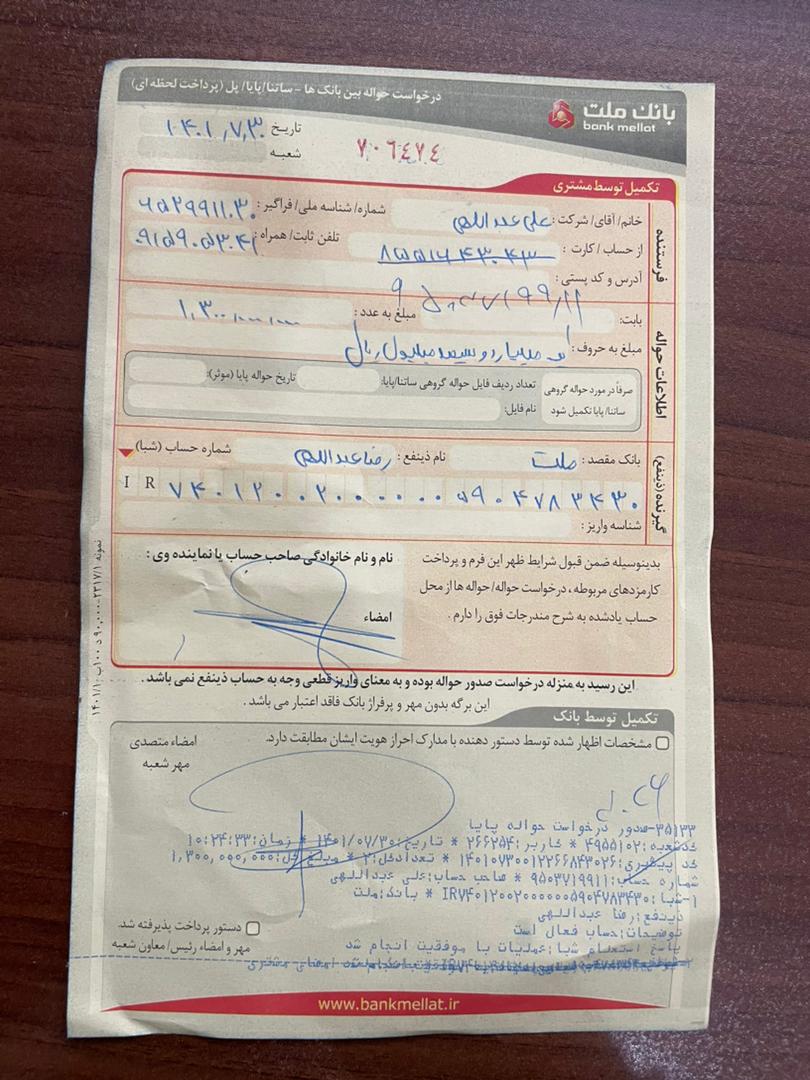 درخواست حواله بین بانک ها - ساتنا/پایا/پل (پرداخت لحظه ای)
بانک ملت
bank mellat
تاریخ ۱۴۰۱,۷,۳۰
شعبه
۷۰۶۴۷۴
تکمیل توسط مشتری
فرستنده
خانم/آقای/شرکت: علی عبداللهی شماره/شناسه ملی/فراگیر:
از حساب/کارت: تلفن ثابت/همراه:
آدرس و کد پستی:
اطلاعات حواله
بابت: مبلغ به عدد: ۱,۳۰۰,۰۰۰,۰۰۰
مبلغ به حروف: یک میلیارد و سیصد میلیون ریال
صرفاً در مورد حواله گروهی ساتنا/پایا تکمیل شود
تعداد ردیف فایل حواله گروهی ساتنا/پایا: تاریخ حواله پایا (موثر):
نام فایل:
گیرنده (ذینفع)
بانک مقصد: ملت نام ذینفع: رضا عبداللهی شماره حساب (شبا)
I R ۷۴۰۱۲۰۰۲۰۰۰۰۰۰۵۹۰۴۷۸۳۴۳۰
شناسه واریز:
بدینوسیله ضمن قبول شرایط ظهر این فرم و پرداخت
کارمزدهای مربوطه، درخواست حواله/حواله ها از محل
حساب یادشده به شرح مندرجات فوق را دارم.
نام و نام خانوادگی صاحب حساب یا نماینده وی:
امضاء
این رسید به منزله درخواست صدور حواله بوده و به معنای واریز قطعی وجه به حساب ذینفع نمی باشد.
این برگه بدون مهر و پرفراژ بانک فاقد اعتبار می باشد.
تکمیل توسط بانک
مشخصات اظهار شده توسط دستور دهنده با مدارک احراز هویت ایشان مطابقت دارد.
امضاء متصدی
مهر شعبه
۳۵۱۳۳-صدور درخواست حواله پایا
کدشعبه:۴۹۵۵۱۰۲ * کاربر:۲۶۶۲۵۴ * تاریخ:۱۴۰۱/۰۷/۳۰ * زمان:۱۰:۲۴:۳۳
کد پیگیری:۱۴۰۱۰۷۳۰۰۱۲۲۶۶۸۴۳۰۲۶ * تعدادکل:۲ * مبلغ کل:۱,۳۰۰,۰۰۰,۰۰۰
شماره حساب:۹۵۰۳۷۱۹۹۱۱ * صاحب حساب:علی عبداللهی
۱-شبا:IR۷۴۰۱۲۰۰۲۰۰۰۰۰۰۵۹۰۴۷۸۳۴۳۰ * بانک:ملت
ذینفع:رضا عبداللهی
توضیحات:حساب فعال است
پاسخ استعلام شبا:عملیات با موفقیت انجام شد
دستور پرداخت پذیرفته شد.
مهر و امضاء رئیس/معاون شعبه
www.bankmellat.ir